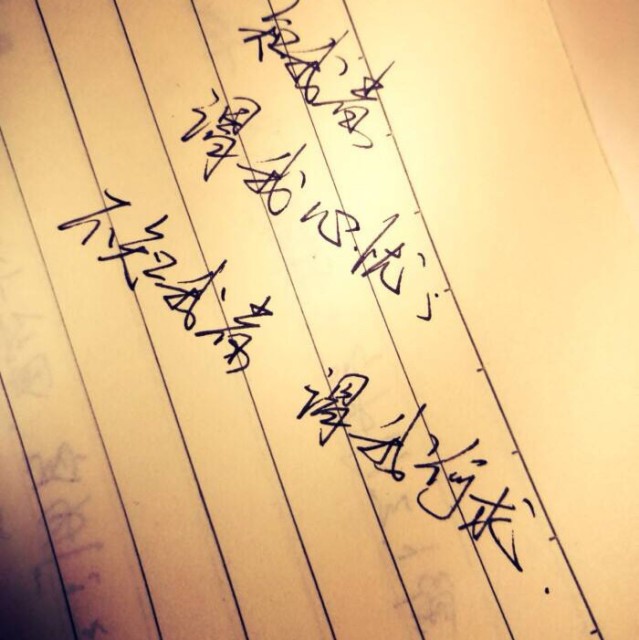 知我者
谓我心忧;
不知我者
谓我何求.